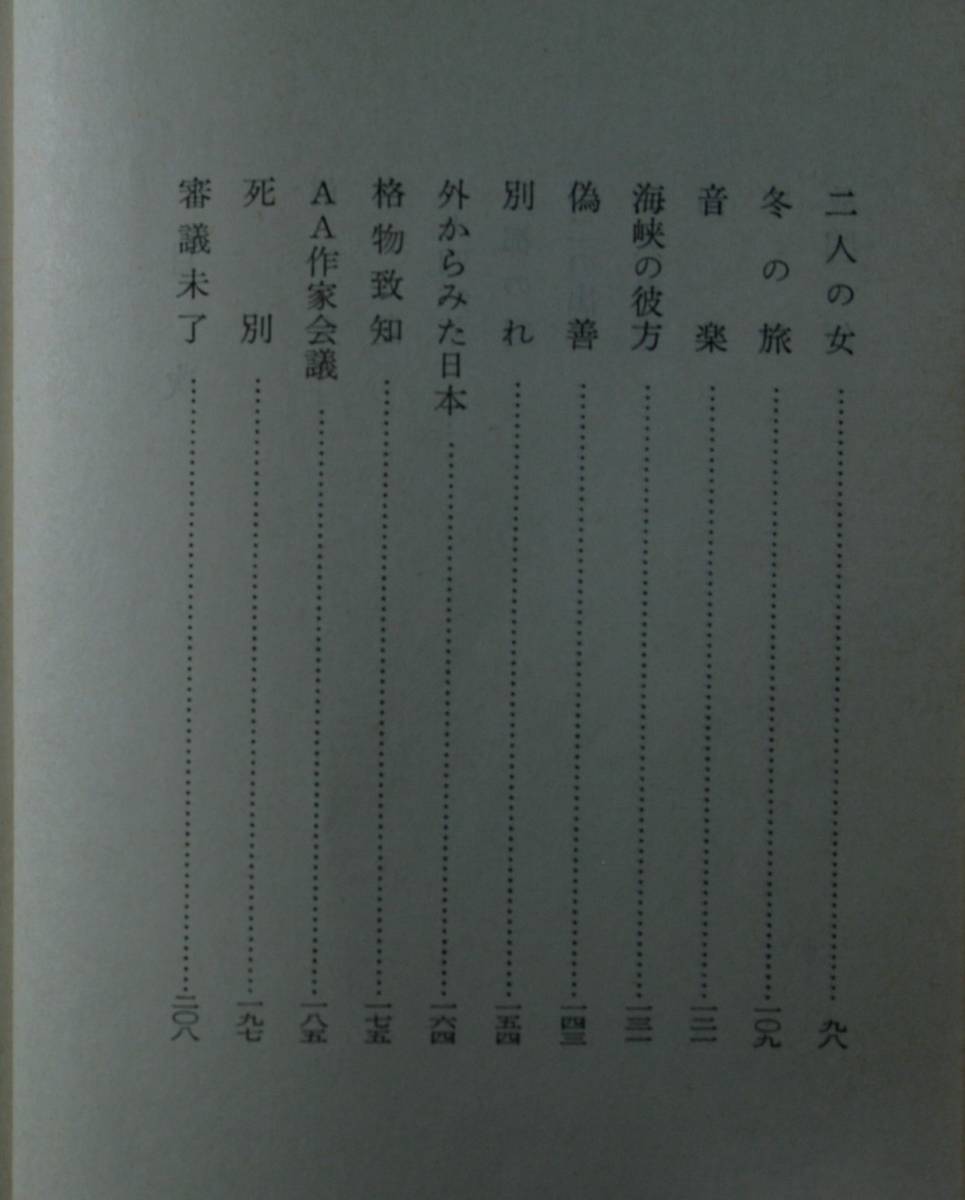 二人の女……九八
冬の旅……一〇九
音楽……一二一
海峡の彼方……一三一
偽善……一四三
別れ……一五四
外からみた日本……一六四
格物致知……一七五
AA作家会議……一八五
死別……一九七
審議未了……二〇八